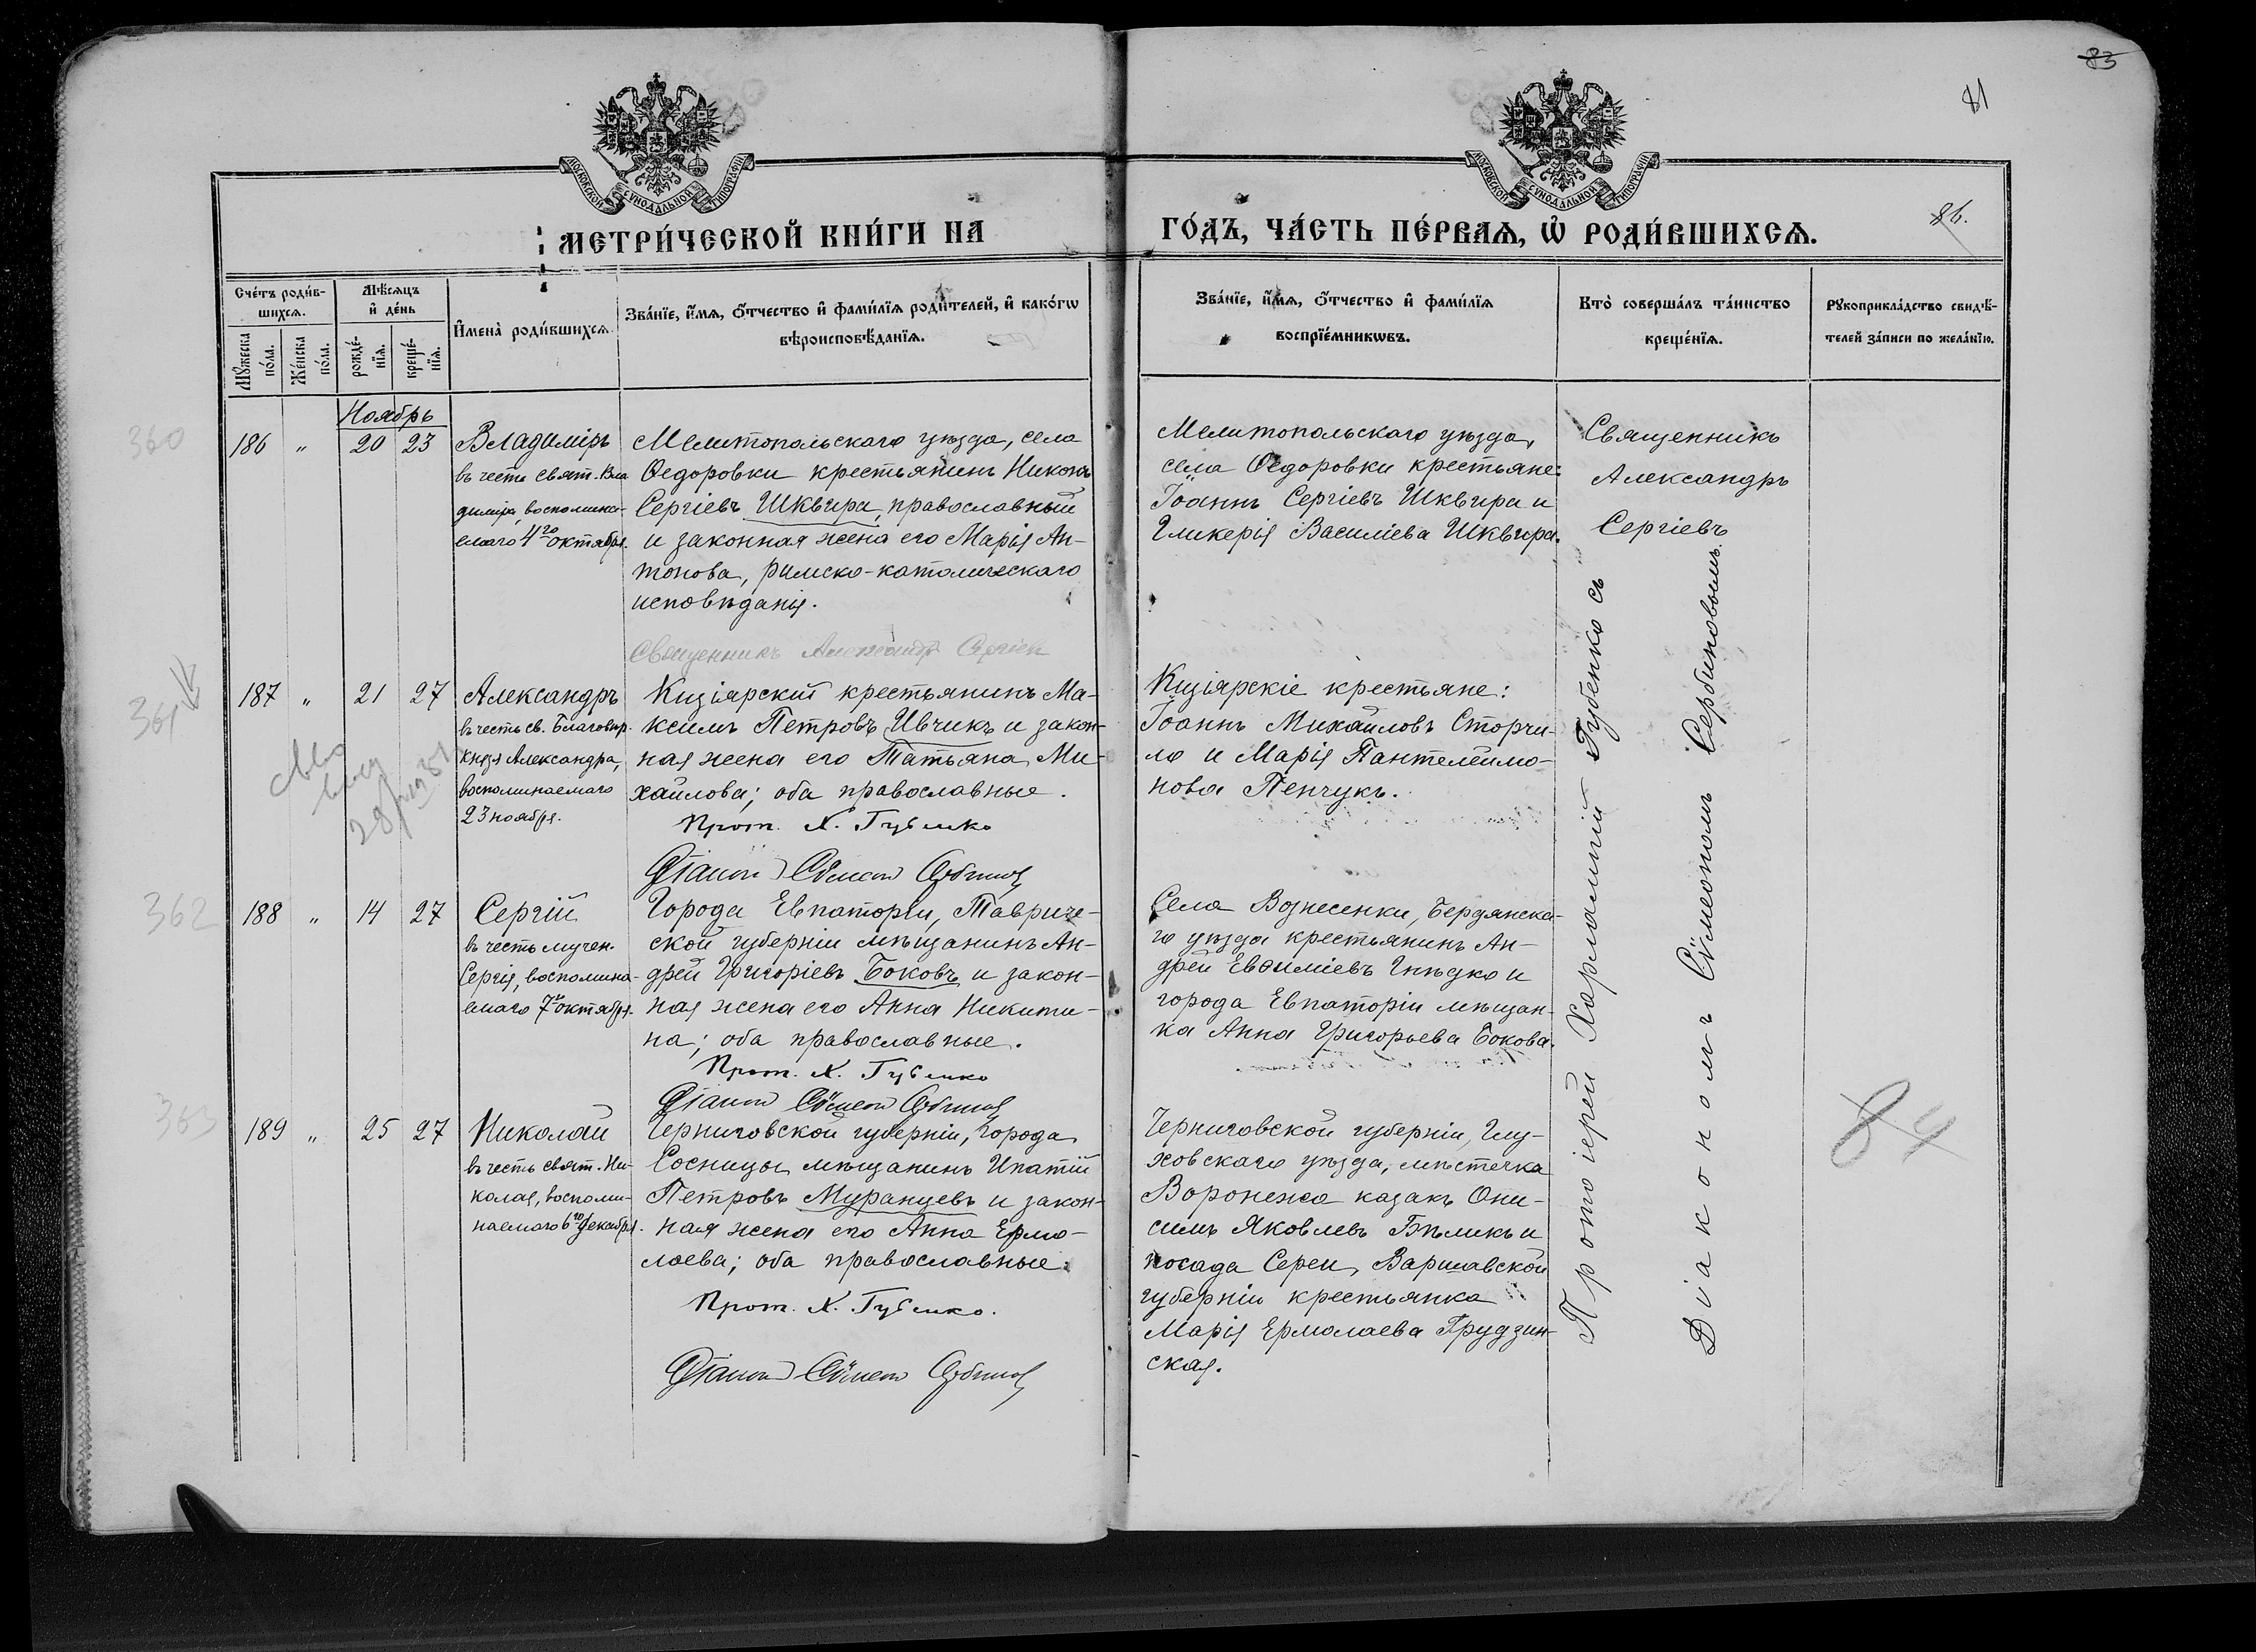 83
81
86.
МОСКОВСКОЙ СѴНОДАЛЬНОЙ ТИПОГРАФІИ
МОСКОВСКОЙ СѴНОДАЛЬНОЙ ТИПОГРАФІИ
МЕТРИ́ЧЕСКОЙ КНИ́ГИ НА
ГО́ДЪ, ЧА́СТЬ ПЕ́РВАѦ, Ѡ҆ РОДИ́ВШИХСѦ.
Сче́тъ роди́в-
шихсѧ.
Мꙋ́жеска
по́ла.
Же́нска
по́ла.
Мѣ́сѧцъ
и҆ де́нь
рожде́-
нїѧ.
креще́-
нїѧ.
И҆мена̀ роди́вшихсѧ.
Зва́нїе, и҆́мѧ, ѻ҆́тчество и҆ фами́лїѧ роди́телей, и҆ како́гѡ
вѣроисповѣ́данїѧ.
Зва́нїе, и҆́мѧ, ѻ҆́тчество и҆ фами́лїѧ
воспрїе́мникѡвъ.
Кто̀ соверша́лъ та́инство
креще́нїѧ.
Рꙋкоприкла́дство свидѣ́-
телей за́писи по жела́нїю.
Ноябрь
360
186 " 20 23
Владиміръ
въ честь свят. Вла
димира, воспомина-
емаго 4го октября.
Мелитопольскаго уѣзда, села
Ѳедоровки крестьянинъ Никонъ
Сергіевъ Шквыра, православный
и законная жена его Марія Ан-
тонова, римско-католическаго
исповѣданія.
Священникъ Александръ Сергіевъ
Мелитопольскаго уѣзда,
села Ѳедоровки крестьяне:
Іоаннъ Сергіевъ Шквыра и
Гликерія Василіева Шквыра.
Священникъ
Александръ
Сергіевъ
361
187 " 21 27
Александръ
въ честь св. Благовѣр.
князя Александра,
воспоминаемаго
23 ноября.
Кизіярскій крестьянинъ Ма-
ксимъ Петровъ Ивчикъ и закон-
ная жена его Татьяна Ми-
хайлова; оба православные.
Прот. Х. Губенко
Діаконъ Сѵмеонъ Сербиновъ
Кизіярскіе крестьяне:
Іоаннъ Михайловъ Сторчи-
ло и Марія Пантелеимо-
нова Пенчукъ.
362
188 " 14 27
Сергій
въ честь мучен.
Сергія, воспомина-
емаго 7го октября.
Города Евпаторіи, Тавриче-
ской губерніи мѣщанинъ Ан-
дрей Григоріевъ Боковъ и закон-
ная жена его Анна Никити-
на; оба православные.
Прот. Х. Губенко
Діаконъ Сѵмеонъ Сербиновъ
Села Вознесенки, Бердянска-
го уѣзда крестьянинъ Ан-
дрей Евѳиміевъ Гнѣдко и
города Евпаторіи мѣщан-
ка Анна Григорьева Бокова.
363
189 " 25 27
Николай
въ честь свят. Ни-
колая, воспоми-
наемаго 6го декабря.
Черниговской губерніи, города
Сосницы мѣщанинъ Ипатій
Петровъ Муранцевъ и закон-
ная жена его Анна Ермо-
лаева; оба православные.
Прот. Х. Губенко.
Діаконъ Сѵмеонъ Сербиновъ
Черниговской губерніи, Глу-
ховскаго уѣзда, мѣстечка
Воронежа казакъ Они-
симъ Яковлевъ Бѣликъ и
посада Сереи, Варшавской
губерніи крестьянка
Марія Ермолаева Грудзин-
ская.
Протоіерей Харлампій Губенко съ
Діакономъ Сѵмеономъ Сербиновымъ.
84